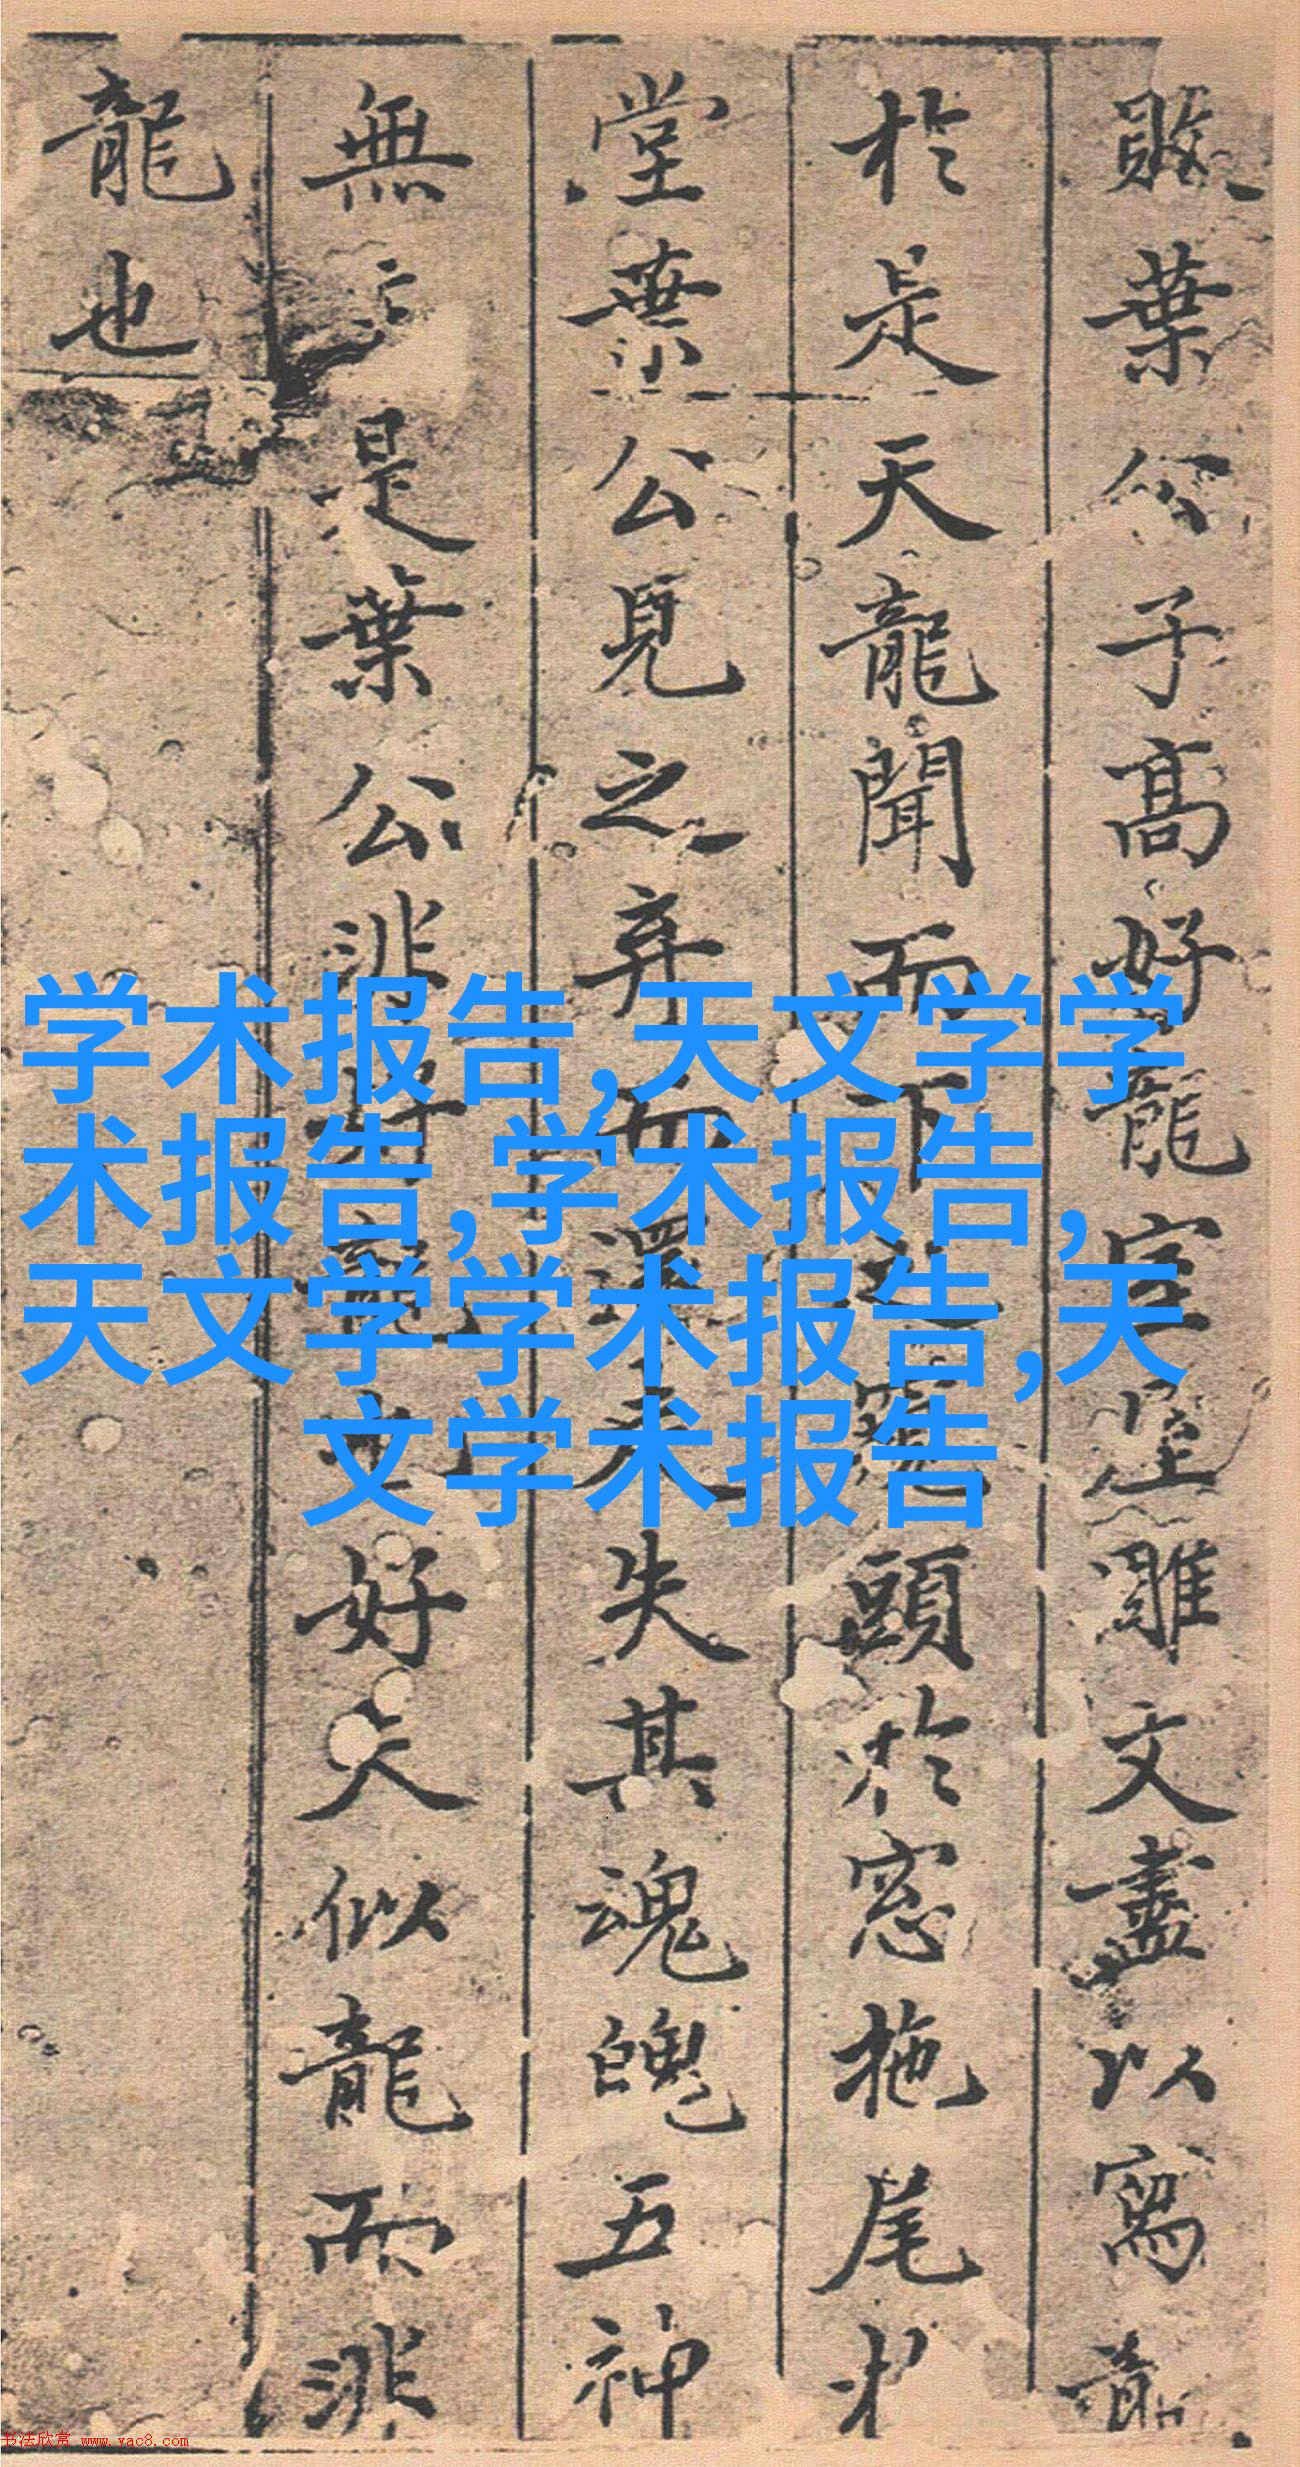 敗葉公子高好龍室雕文盡以寫龍
於是天龍聞而下之窺頭於窓拖尾於
堂葉公見之弃而還走失其魂魄五神
無主是葉公非好龍也好夫似龍而非
龍也
学术报告,天文学学
术报告,学术报告,
天文学学术报告,天
文学术报告
书法欣赏 www.yac8.com